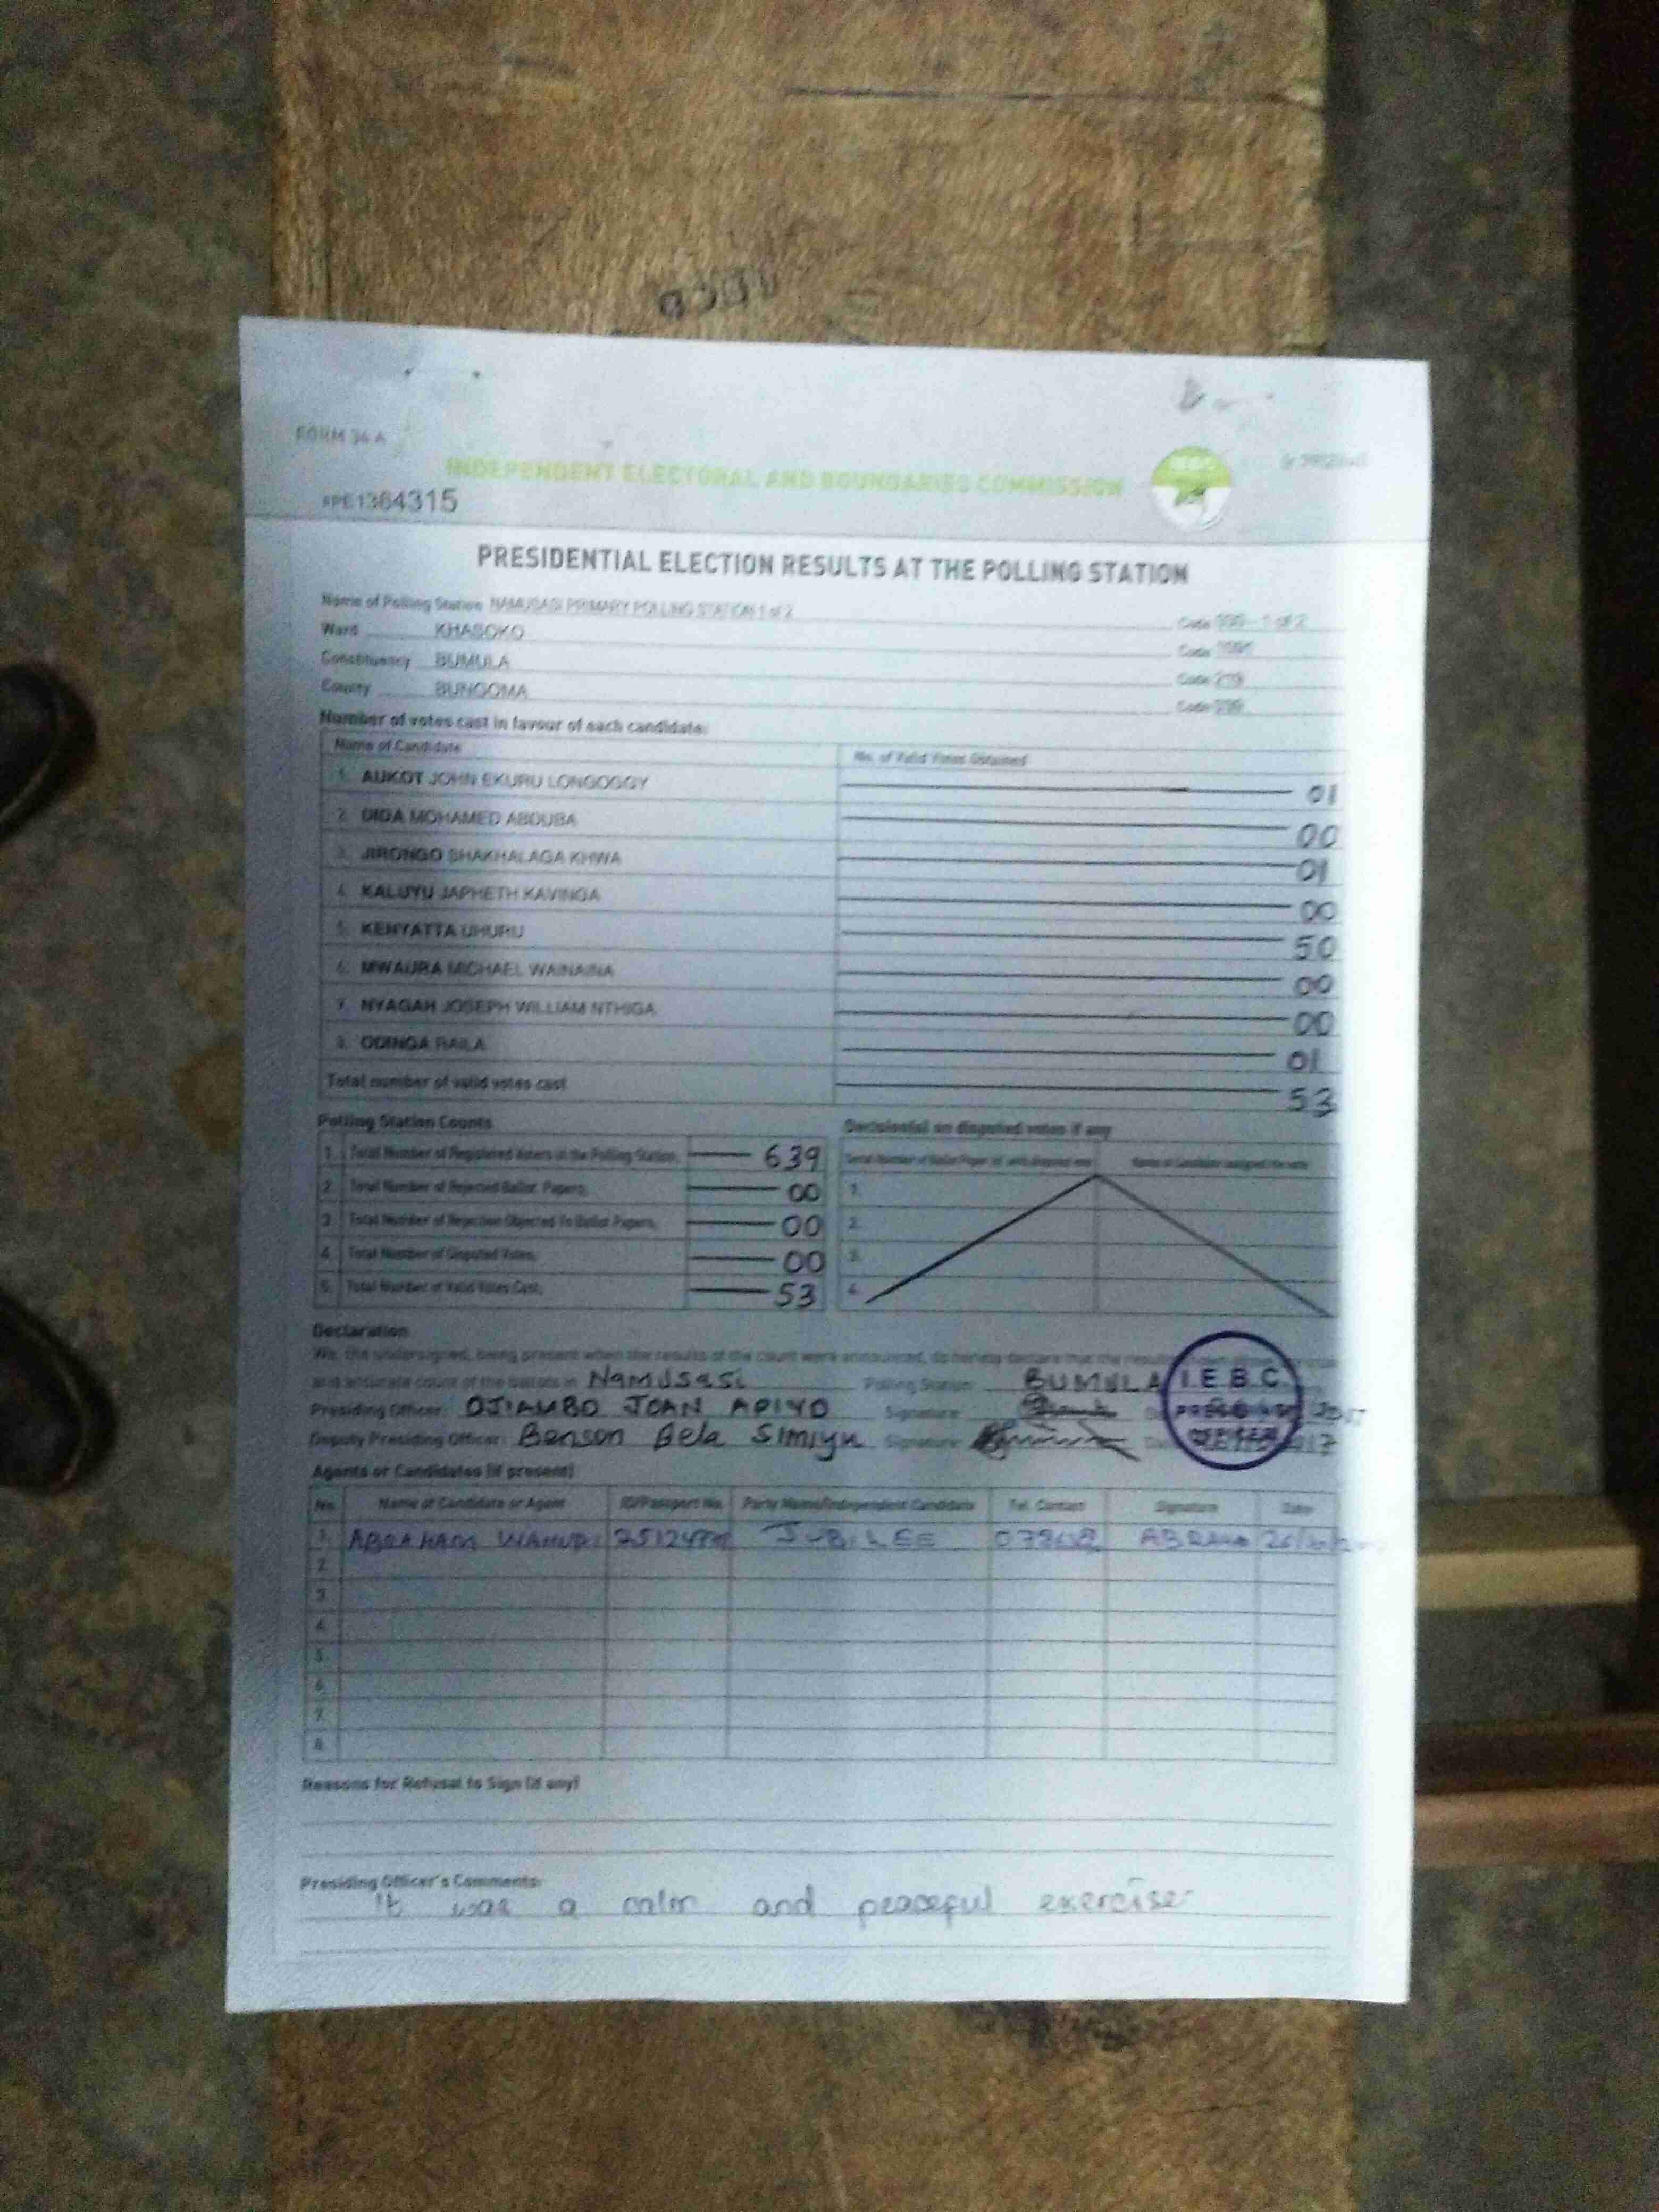 FORM 34 A
INDEPENDENT ELECTORAL AND BOUNDARIES COMMISSION
1364315
PRESIDENTIAL ELECTION RESULTS AT THE POLLING STATION
Name of Polling Station NAMUSASI PRIMARY POLLING STATION 1 of 2 Code 1 of 2
Ward KHASOKO Code
Constituency BUMULA Code 219
County BUNGOMA Code
Number of votes cast in favour of each candidate:
Name of Candidate No. of Valid Votes Obtained
1. AUKOT JOHN EKURU LONGOGGY 01
2. DIDA MOHAMED ABDUBA 00
3. JIRONGO SHAKHALAGA KHWA 01
4. KALUYU JAPHETH KAVINGA 00
5. KENYATTA UHURU 50
6. MWAURA MICHAEL WAINAINA 00
7. NYAGAH JOSEPH WILLIAM NTHIGA 00
8. ODINGA RAILA 01
Total number of valid votes cast 53
Polling Station Counts Decision(s) on disputed votes if any
1. Total Number of Registered Voters in the Polling Station. 639
2. Total Number of Rejected Ballot Papers. 00 1.
3. Total Number of Rejection Objected To Ballot Papers. 00 2.
4. Total Number of Disputed Votes. 00 3.
5. Total Number of Valid Votes Cast. 53 4.
Declaration
We, the undersigned, being present when the results of the count were announced, do hereby declare that the results
and accurate count of the ballots in Namusasi Polling Station BUMULA
Presiding Officer: OJIAMBO JOAN APIYO Signature:
Deputy Presiding Officer: Benson Bela Simiyu Signature:
I.E.B.C
PRESIDING
OFFICER
Agents or Candidates (if present)
No. Name of Candidate or Agent ID/Passport No. Party Name/Independent Candidate Tel. Contact Signature Date
1. ABRAHAM JUBILEE
2.
3.
4.
5.
6.
7.
8.
Reasons for Refusal to Sign (if any)
Presiding Officer's Comments:
It was a calm and peaceful exercise